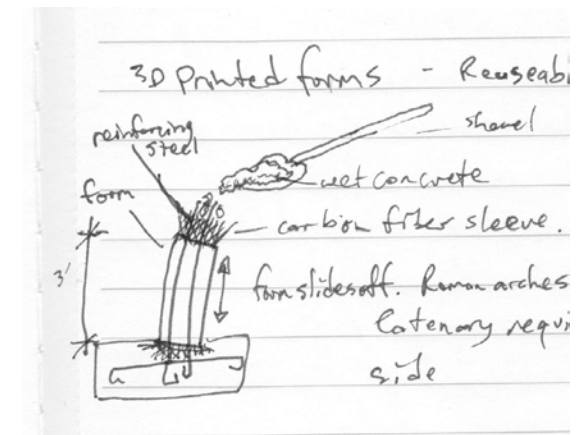 3D Printed forms - Reuseabi
shovel
reinforcing
steel
wet concrete
form
carbon fiber sleeve.
3'
form slides off. Roman arches
Catenary requi
side